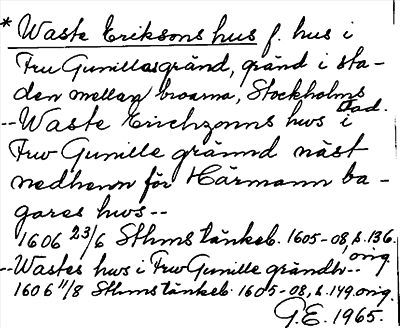 * Waste Eriksons hus f. hus i
Fru Gunillas gränd, gränd i sta-
den mellan broarna, Stockholms
stad.
-- Waste Erichzonns hws i
Frw Gunille grännd näst
nedhenn för Härmann ba-
gares hws--
1606 23/6 Sthms tänkeb. 1605-08, s. 136.
orig.
-- Wastes hws i Frw Gunille grändh--
1606 11/8 Sthms tänkeb. 1605-08, s. 149. orig.
G.E. 1965.